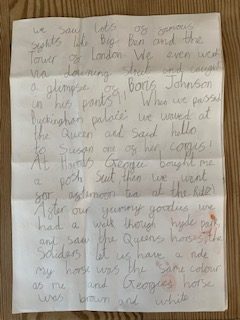 we saw lots of famous
sights like Big Ben and the
tower of London We even went
via downing street and caught
a glimpse of Boris Johnson
in his pants!! When we passed
buckingham palace we waved at
the Queen and said hello
to Susan one of her corgis!
At Harrods Georgie bought me
a posh suit then we went
for afternoon tea at the Ritz!
After our yummy goodies we
had a walk though hyde park
and saw the Queens horses, the
Soldiers let us have a ride
my horse was the same colour
as me and Georgies horse
was brown and white